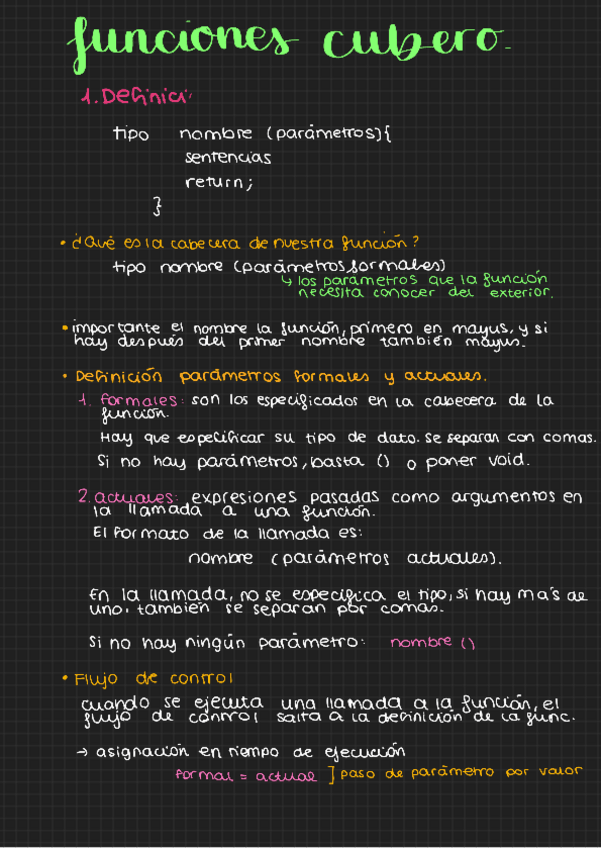 funciones cubero.
1. Definici:
tipo nombre (parámetros){
sentencias
return;
}
• ¿Qué es la cabecera de nuestra función?
tipo nombre (parámetros formales)
↳ los parametros que la función
necesita conocer del exterior.
• importante el nombre la función, primero en mayus, y si
hay después del primer nombre también mayus.
• Definición parámetros formales y actuales.
1. formales: son los especificados en la cabecera de la
función.
Hay que especificar su tipo de dato. Se separan con comas.
Si no hay parámetros, basta () o poner void.
2. actuales: expresiones pasadas como argumentos en
la llamada a una función.
El formato de la llamada es:
nombre (parámetros actuales).
En la llamada, no se especifica el tipo, si hay más de
uno, también se separan por comas.
Si no hay ningún parámetro: nombre ()
• Flujo de control
cuando se ejecuta una llamada a la función, el
flujo de control salta a la definición de la func.
→ asignación en tiempo de ejecución
formal = actual ] paso de parámetro por valor